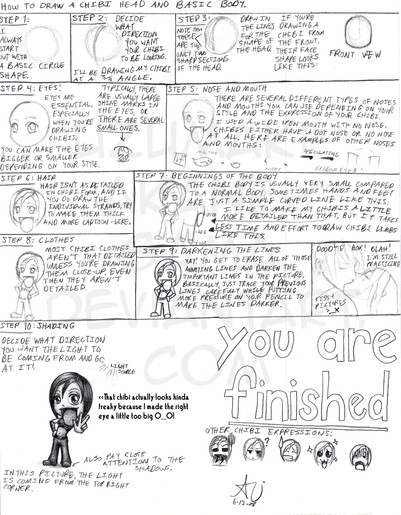 HOW TO DRAW A CHIBI HEAD AND BASIC BODY.
STEP 1:
I
ALWAYS
START
OUT WITH
A BASIC CIRCLE
SHAPE.
STEP 2:
DECIDE
WHAT
DIRECTION
YOU WANT
YOUR CHIBI
TO BE LOOKING.
I'LL BE DRAWING MY CHIBI
AT A 3/4 ANGLE.
STEP 3:
NOTE HOW
THESE
ARE THE
ONLY TWO
SHARP SECTIONS
OF THE HEAD
DRAW IN
LINES
FOR THE
SHAPE OF
THE HEAD
IF YOU'RE
DRAWING A
CHIBI FROM
THE FRONT,
THEIR FACE
SHAPE LOOKS
LIKE THIS:
FRONT VIEW
STEP 4: EYES!
EYES ARE
ESSENTIAL,
ESPECIALLY
WHEN YOU'RE
DRAWING
CHIBIS.
YOU CAN MAKE THE EYES
BIGGER OR SMALLER
DEPENDING ON YOUR STYLE.
TYPICALLY THERE
ARE USUALLY LARGE
SHINE MARKS IN
THE EYES, OR
THERE ARE SEVERAL
SMALL ONES.
STEP 5: NOSE AND MOUTH
THERE ARE SEVERAL DIFFERENT TYPES OF NOSES
AND MOUTHS YOU CAN USE DEPENDING ON YOUR
STYLE AND THE EXPRESSION OF YOUR CHIBI.
I USED A WIDE OPEN MOUTH WITH NO NOSE.
CHIBIS EITHER HAVE A DOT NOSE OR NO NOSE
AT ALL. HERE ARE EXAMPLES OF OTHER NOSES
AND MOUTHS:
STEP 6: HAIR
HAIR ISN'T AS DETAILED
IN CHIBI FORM, AND IF
YOU DO DRAW THE
INDIVIDUAL STRANDS, TRY
TO MAKE THEM THICK
AND MORE CARTOON-LIKE.
STEP 7: BEGINNINGS OF THE BODY
THE CHIBI BODY IS USUALLY VERY SMALL COMPARED
TO A NORMAL BODY. SOMETIMES HANDS AND FEET
ARE JUST A SIMPLE CURVED LINE LIKE THIS:
I LIKE TO MAKE MY CHIBIS A LITTLE
MORE DETAILED THAN THAT, BUT IT TAKES
LESS TIME AND EFFORT TO DRAW CHIBI LIMBS
LIKE THIS.
STEP 8: CLOTHES
MOST CHIBI CLOTHES
AREN'T THAT DETAILED
UNLESS YOU'RE DRAWING
THEM CLOSE-UP, EVEN
THEN THEY AREN'T
DETAILED
STEP 9: DARKENING THE LINES
YAY! YOU GET TO ERASE ALL OF THOSE
ANNOYING LINES AND DARKEN THE
IMPORTANT LINES IN THE PICTURE.
BASICALLY, JUST TRACE YOUR PREVIOUS
LINES CAREFULLY WHILE PUTTING
MORE PRESSURE ON YOUR PENCIL TO
MAKE THE LINES DARKER.
DOODLE BOX!
BLAH!
I'M STILL
PRACTICING
PICTURES
>_X
STEP 10: SHADING
DECIDE WHAT DIRECTION
YOU WANT THE LIGHT TO
BE COMING FROM AND GO
AT IT!
LIGHT
SOURCE
<<That chibi actually looks kinda
freaky because I made the right
eye a little too big O_O!
ALSO PAY CLOSE
ATTENTION TO THE
SHADOWS.
IN THIS PICTURE, THE LIGHT
IS COMING FROM THE TOP RIGHT
CORNER.
you are
finished
OTHER CHIBI EXPRESSIONS: